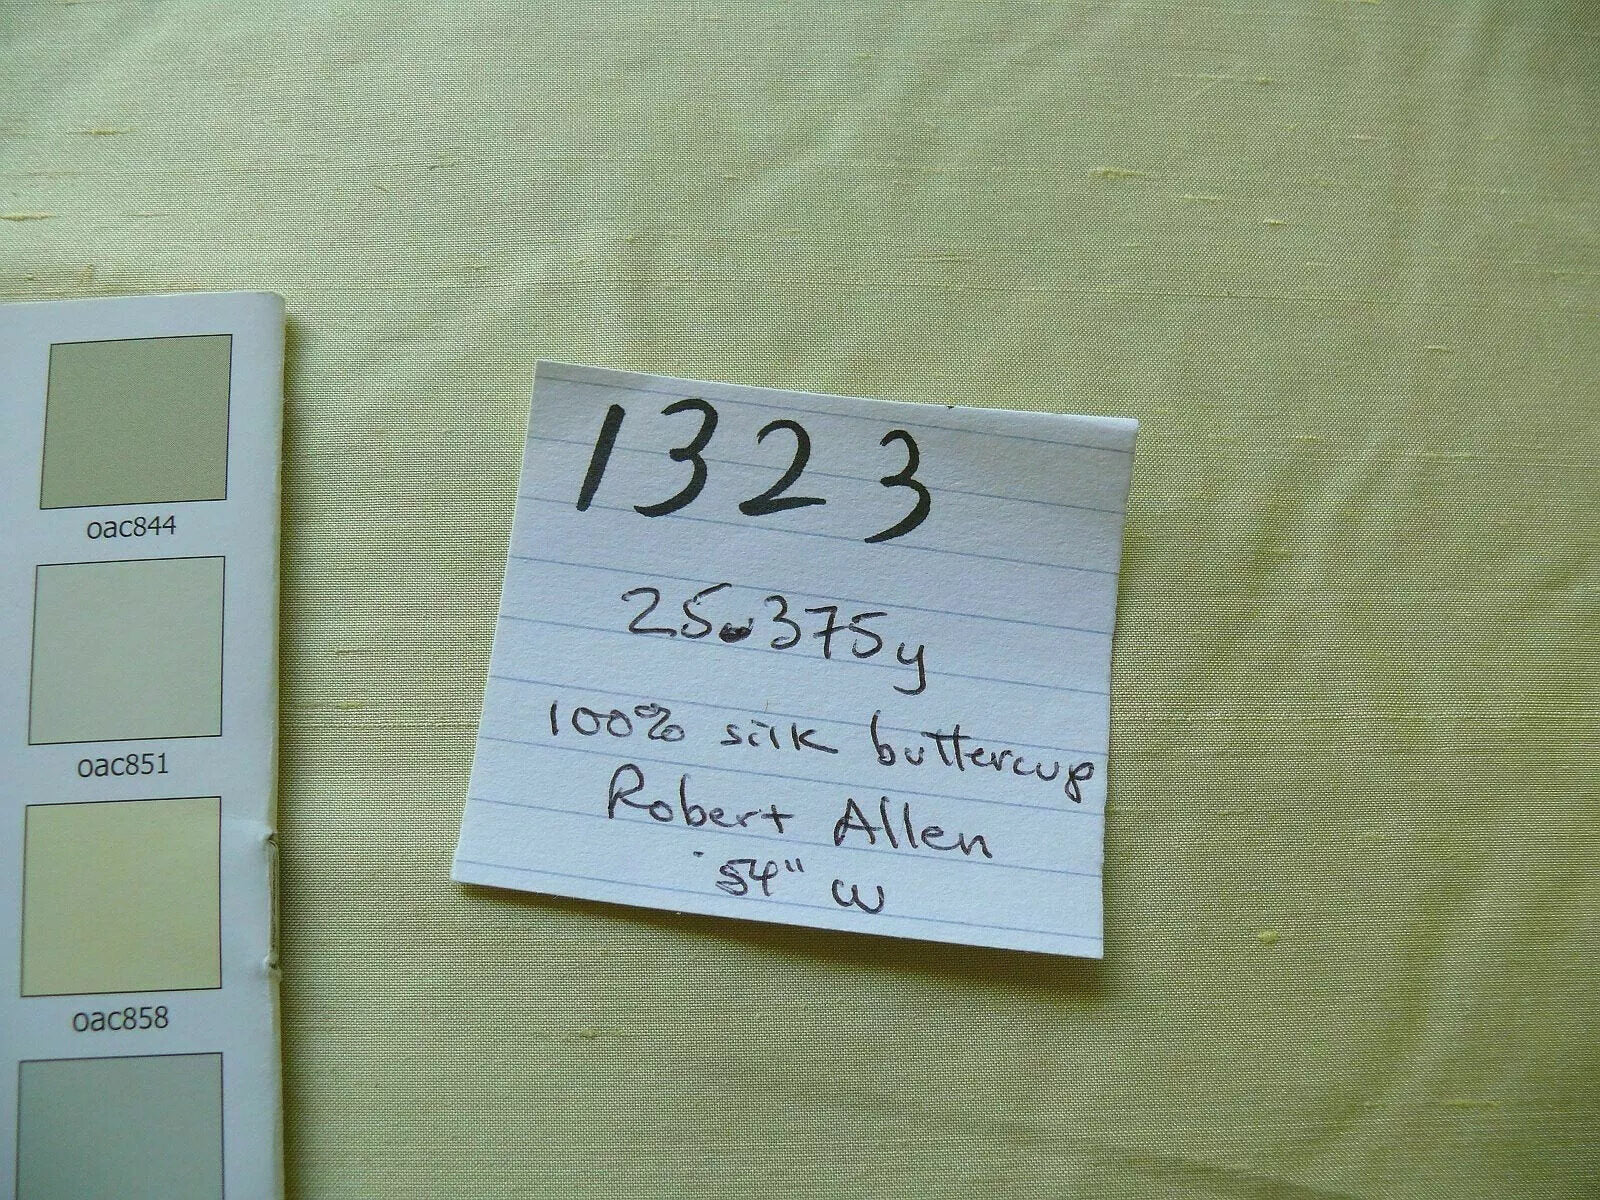 oac844
oac851
oac858
1323
25.375y
100% silk buttercup
Robert Allen
54" w